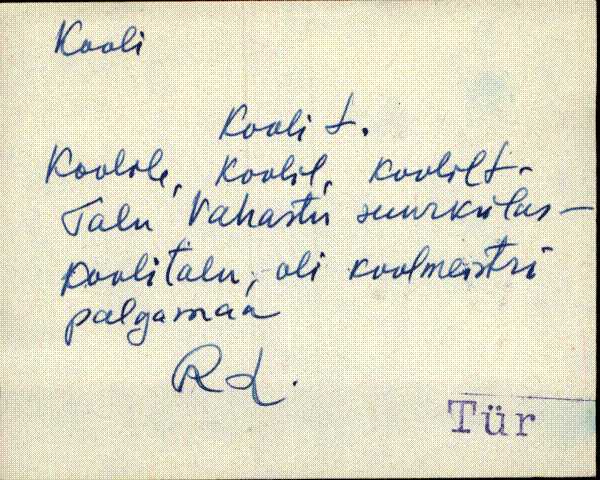 Kooli
Kooli t.
Koolile, Koolil, koolilt.
Talu Vahastu suurkülas –
Koolitalu, oli koolmeistri
palgamaa
RL.
Tür